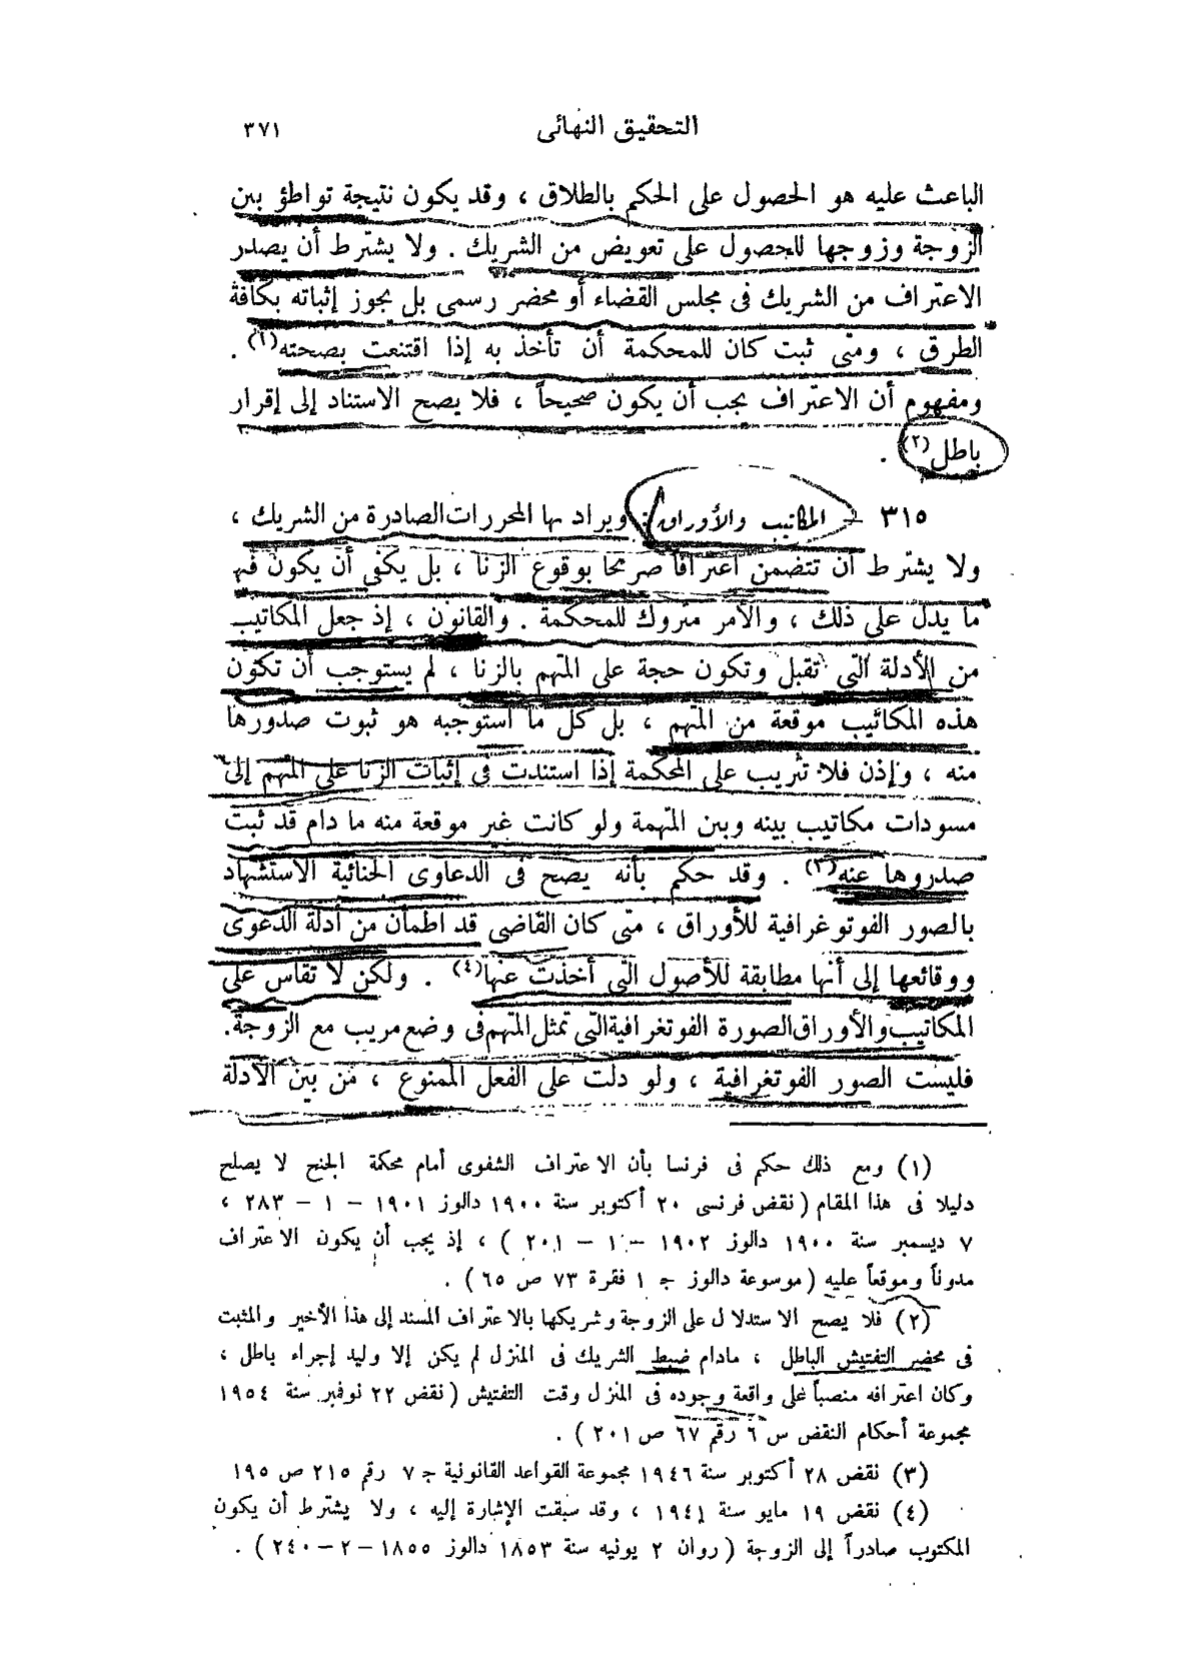 التحقيق النهائى ٣٧١
الباعث عليه هو الحصول على الحكم بالطلاق ، وقد يكون نتيجة تواطؤ بين
الزوجة وزوجها للحصول على تعويض من الشريك . ولا يشترط أن يصدر
الاعتراف من الشريك فى مجلس القضاء أو محضر رسمى بل يجوز إثباته بكافة
الطرق ، ومتى ثبت كان للمحكمة أن تأخذ به إذا اقتنعت بصحته(١) .
ومفهوم أن الاعتراف يجب أن يكون صحيحاً ، فلا يصح الاستناد إلى إقرار
باطل(٢) .
٣١٥ – المكاتيب والأوراق : ويراد بها المحررات الصادرة من الشريك ،
ولا يشترط أن تتضمن اعترافا صريحا بوقوع الزنا ، بل يكفى أن يكون فيها
ما يدل على ذلك ، والأمر متروك للمحكمة . والقانون ، إذ جعل المكاتيب
من الأدلة التى تقبل وتكون حجة على المتهم بالزنا ، لم يستوجب أن تكون
هذه المكاتيب موقعة من المتهم ، بل كل ما استوجبه هو ثبوت صدورها
منه ، وإذن فلا تثريب على المحكمة إذا استندت فى إثبات الزنا على المتهم إلى
مسودات مكاتيب بينه وبين المتهمة ولو كانت غير موقعة منه ما دام قد ثبت
صدروها عنه(٣) . وقد حكم بأنه يصح فى الدعاوى الجنائية الاستشهاد
بالصور الفوتوغرافية للأوراق ، متى كان القاضى قد اطمأن من أدلة الدعوى
ووقائعها إلى أنها مطابقة للأصول التى أخذت عنها(٤) . ولكن لا تقاس على
المكاتيب والأوراق الصورة الفوتغرافية التى تمثل المتهم فى وضع مريب مع الزوجة .
فليست الصور الفوتغرافية ، ولو دلت على الفعل الممنوع ، من بين الأدلة
(١) ومع ذلك حكم فى فرنسا بأن الاعتراف الشفوى أمام محكمة الجنح لا يصلح
دليلا فى هذا المقام ( نقض فرنسى ٢٠ أكتوبر سنة ١٩٠٠ دالوز ١٩٠١ – ١ – ٢٨٣ ،
٧ ديسمبر سنة ١٩٠٠ دالوز ١٩٠٢ – ١ – ٢٠١ ) ، إذ يجب أن يكون الاعتراف
مدوناً وموقعاً عليه ( موسوعة دالوز ج ١ فقرة ٧٣ ص ٦٥ ) .
(٢) فلا يصح الاستدلال على الزوجة وشريكها بالاعتراف المسند إلى هذا الأخير والمثبت
فى محضر التفتيش الباطل ، مادام ضبط الشريك فى المنزل لم يكن إلا وليد إجراء باطل ،
وكان اعترافه منصباً على واقعة وجوده فى المنزل وقت التفتيش ( نقض ٢٢ نوفمبر سنة ١٩٥٤
مجموعة أحكام النقض س ٦ رقم ٦٧ ص ٢٠١ ) .
(٣) نقض ٢٨ أكتوبر سنة ١٩٤٦ مجموعة القواعد القانونية ج ٧ رقم ٢١٥ ص ١٩٥
(٤) نقض ١٩ مايو سنة ١٩٤١ ، وقد سبقت الإشارة إليه ، ولا يشترط أن يكون
المكتوب صادراً إلى الزوجة ( روان ٢ يونيه سنة ١٨٥٣ دالوز ١٨٥٥ – ٢ – ٢٤٠ ) .